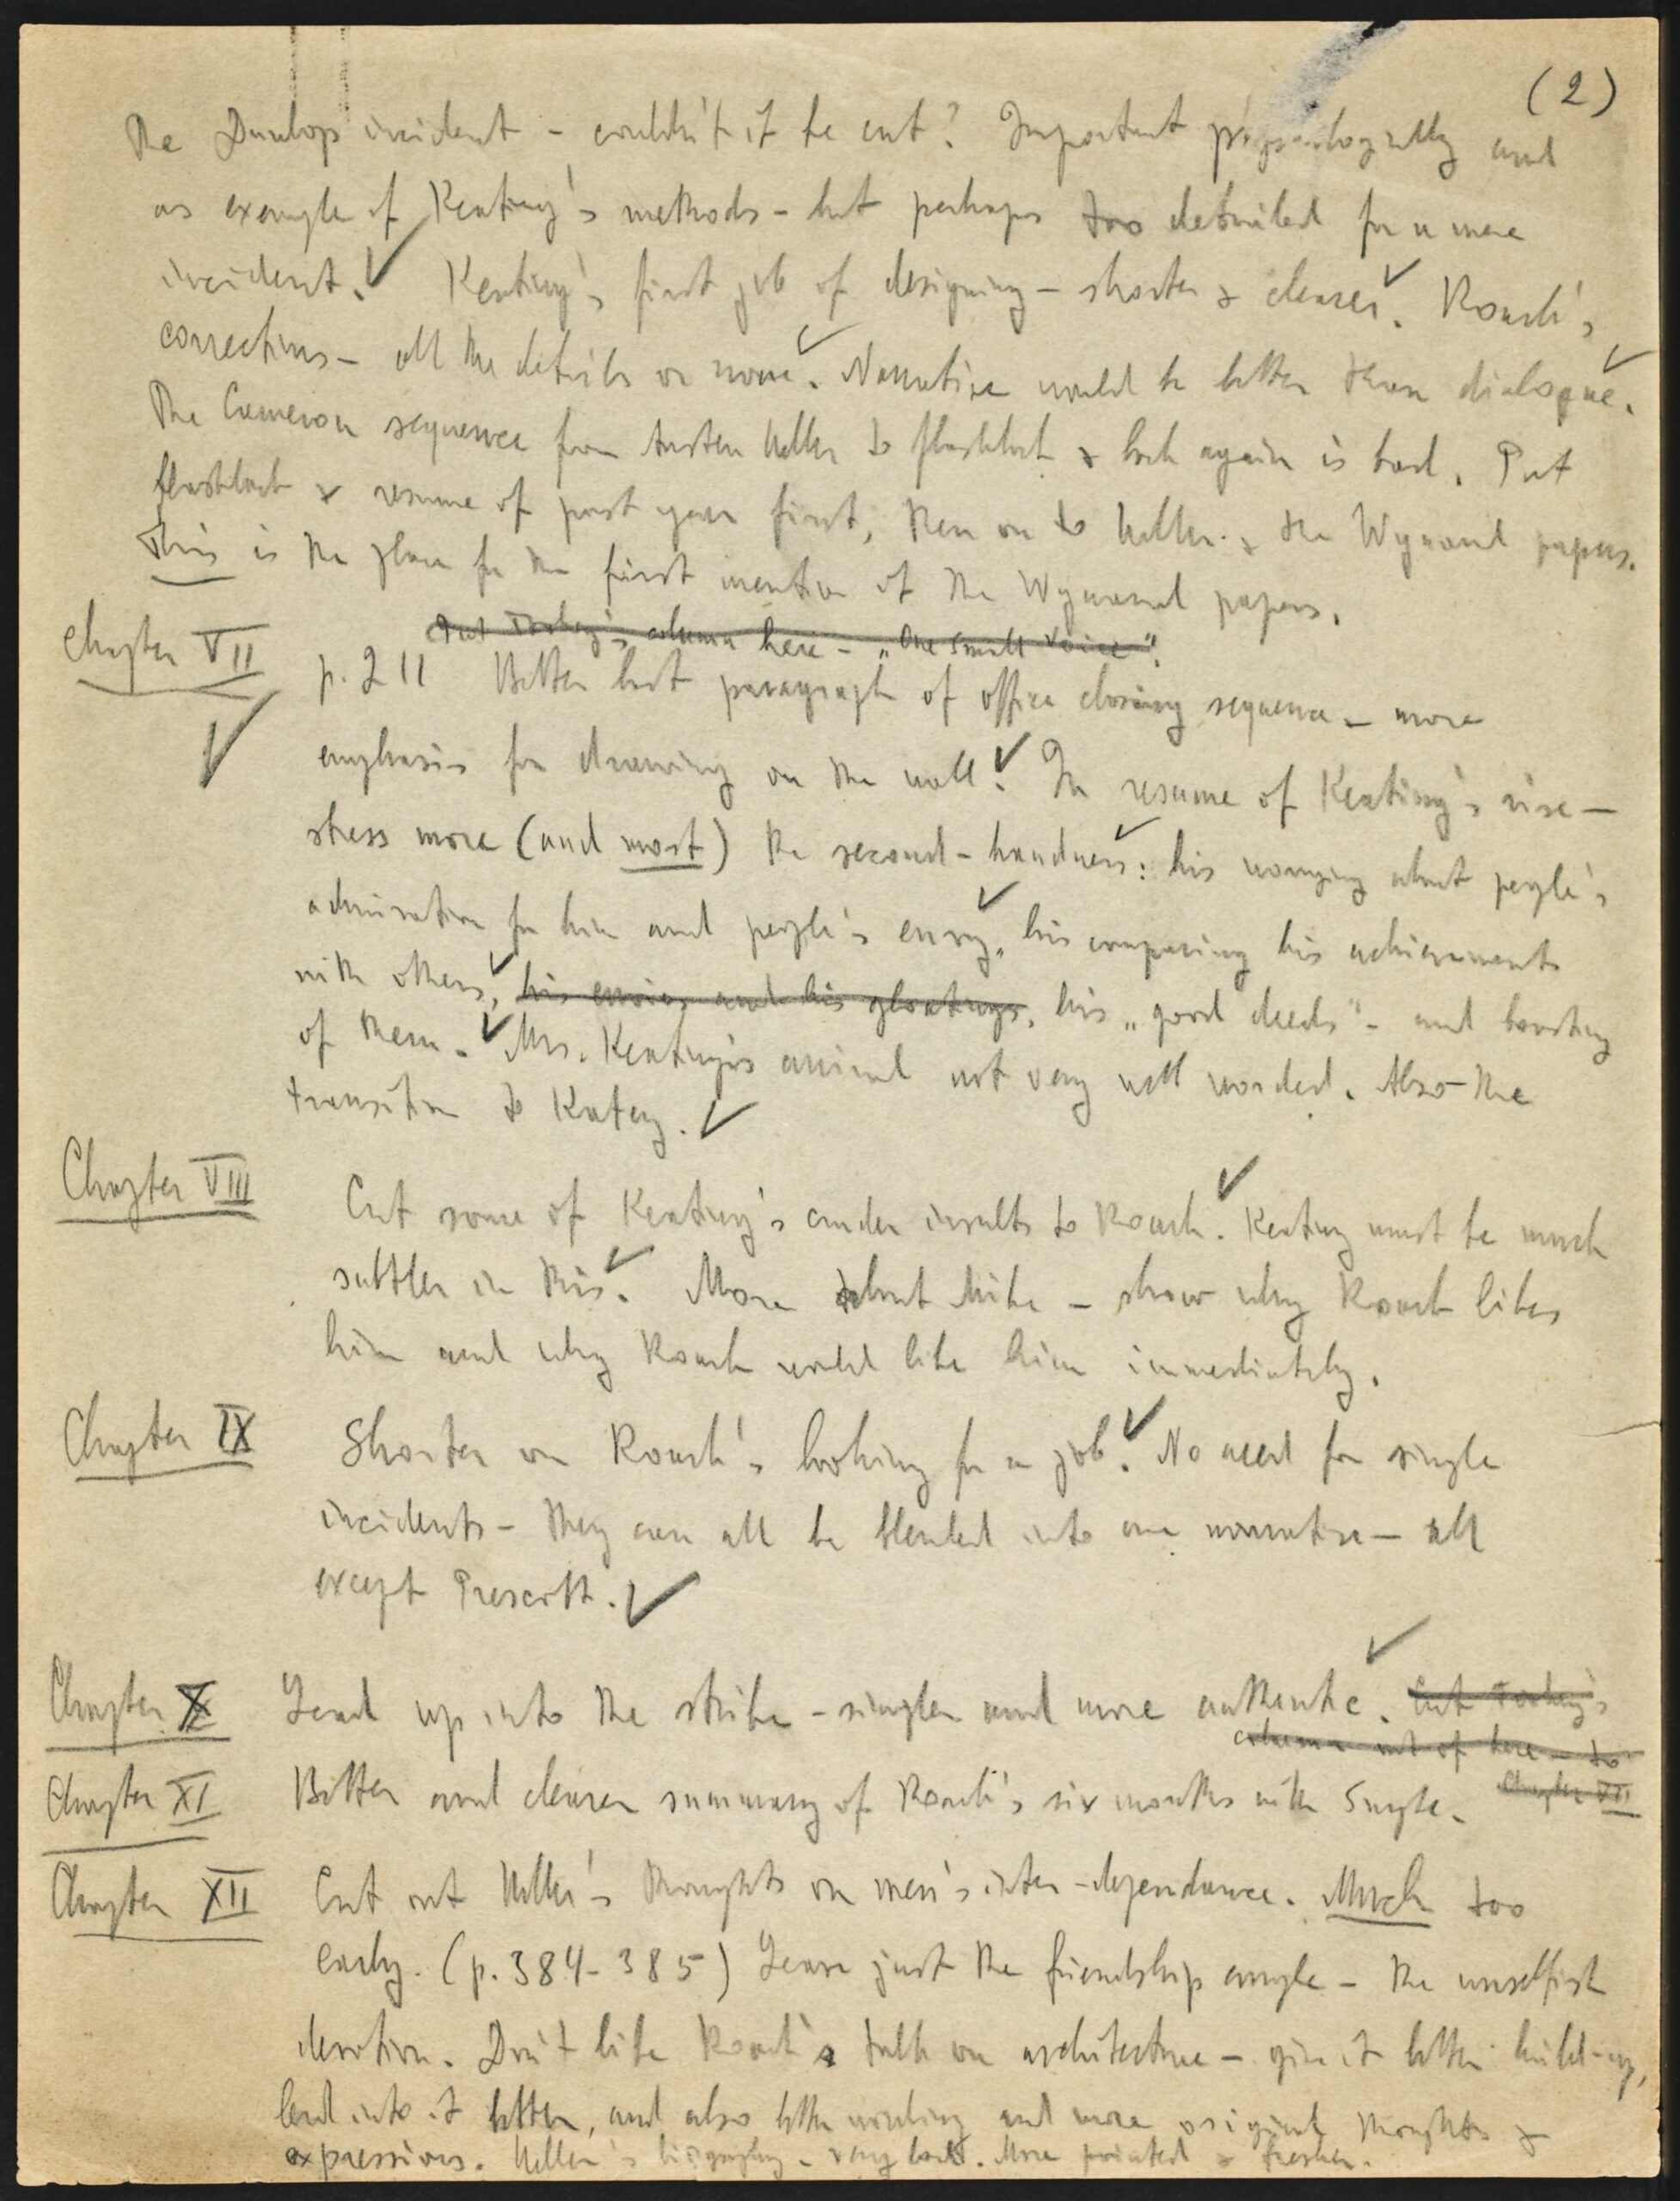 (2)
The Dunlop incident - couldn't it be cut? Important psychologically and
as example of Keating's methods - but perhaps too detailed for a mere
incident. ✓ Keating's first job of designing - shorter & clearer. ✓ Roark's
corrections - all the details or none. ✓ Narrative would be better than dialogue. ✓
The Cameron sequence from Austen Heller to flashback & back again is bad. Put
flashback & resume of past year first, then on to Heller & the Wynand papers.
This is the place for the first mention of the Wynand papers.
Put Toohey's column here - "One Small Voice".
Chapter VII p. 211 Better last paragraph of office closing sequence - more
✓ emphasis for drawing on the wall. ✓ In resume of Keating's rise -
stress more (and most) the second-handness: ✓ his worrying about people's
admiration for him and people's envy, ✓ his comparing his achievements
with others, ✓ his envies and his gloatings, his "good deeds" - and boasting
of them. ✓ Mrs. Keating's arrival not very well worded. Also the
transition to Katey. ✓
Chapter VIII Cut some of Keating's cruder insults to Roark. ✓ Keating must be much
subtler in this. ✓ More about Mike - show why Roark likes
him and why Roark would like him immediately.
Chapter IX Shorter on Roark's looking for a job. ✓ No need for single
incidents - they can all be blended into one narrative - all
except Prescott. ✓
Chapter X Lead up into the strike - simpler and more authentic. ✓ Cut Toohey's
column out of here - to
Chapter VII
Chapter XI Better and clearer summary of Roark's six months with Snyte.
Chapter XII Cut out Heller's thoughts on men's inter-dependance. Much too
early. (p. 384-385) Leave just the friendship angle - the unselfish
devotion. Don't like Roark's talk on architecture - give it better build-up,
lead into it better, and also better wording and more original thoughts &
expressions. Heller's biography - very bad. More pointed & fresher.